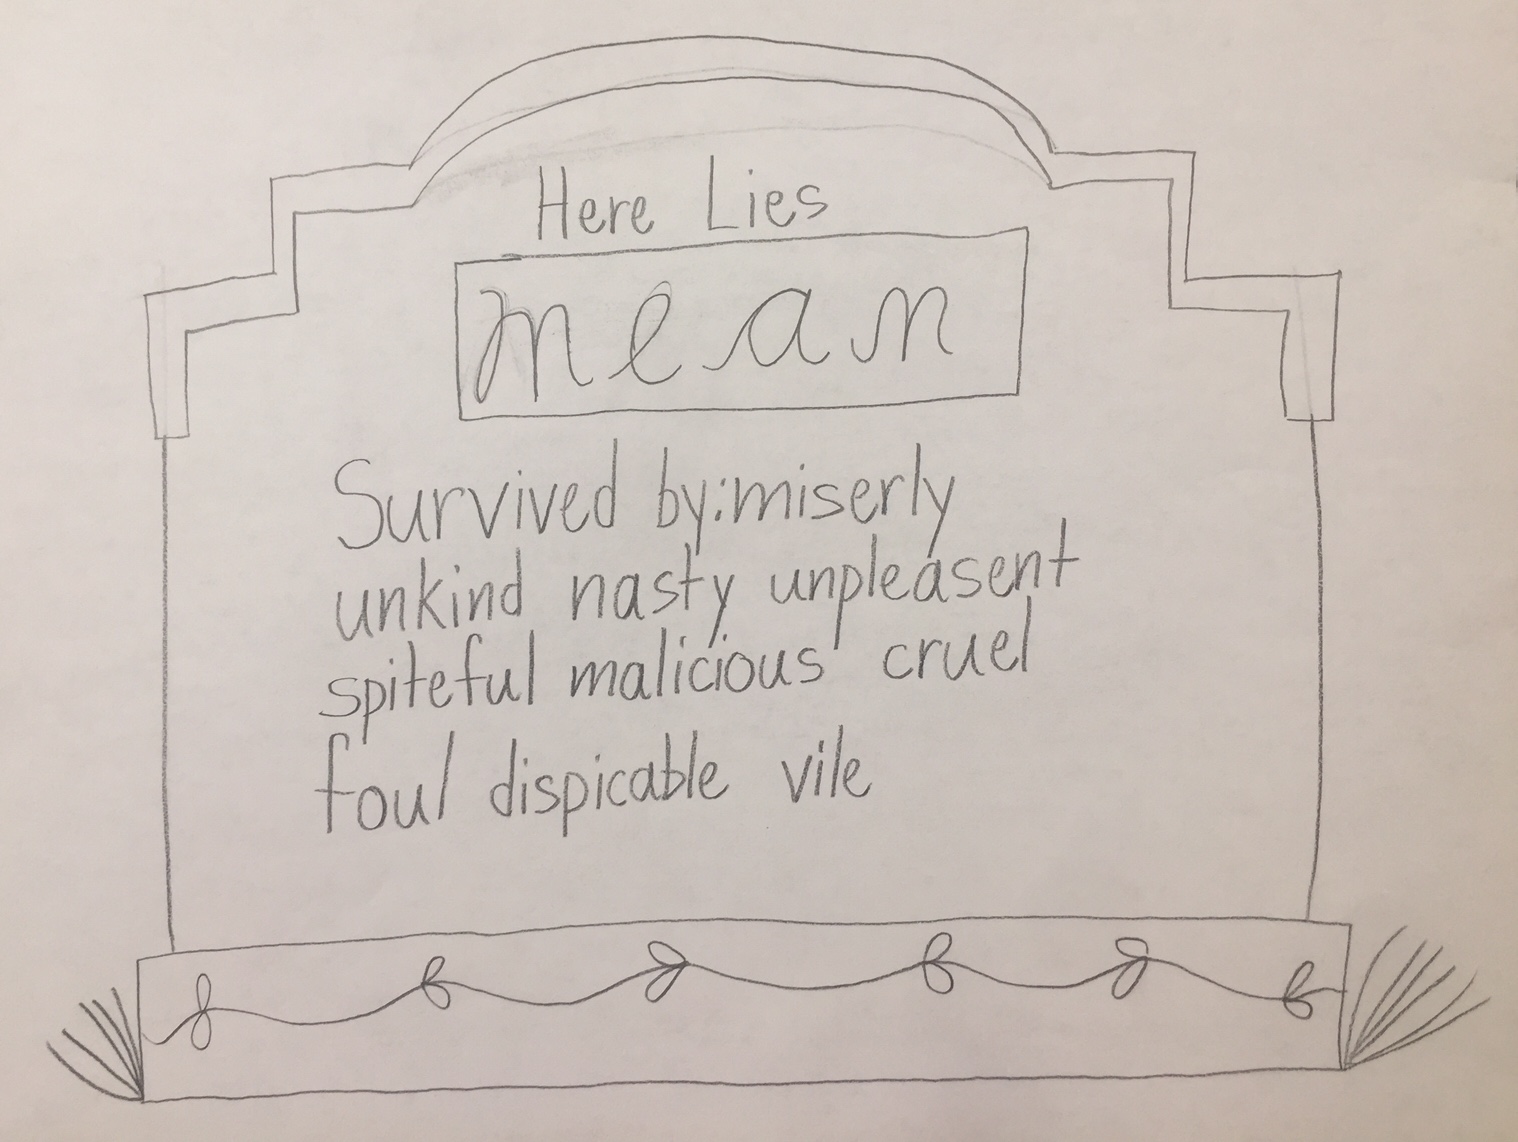 Here Lies
mean
Survived by:miserly
unkind nasty unpleasent
spiteful malicious cruel
foul dispicable vile